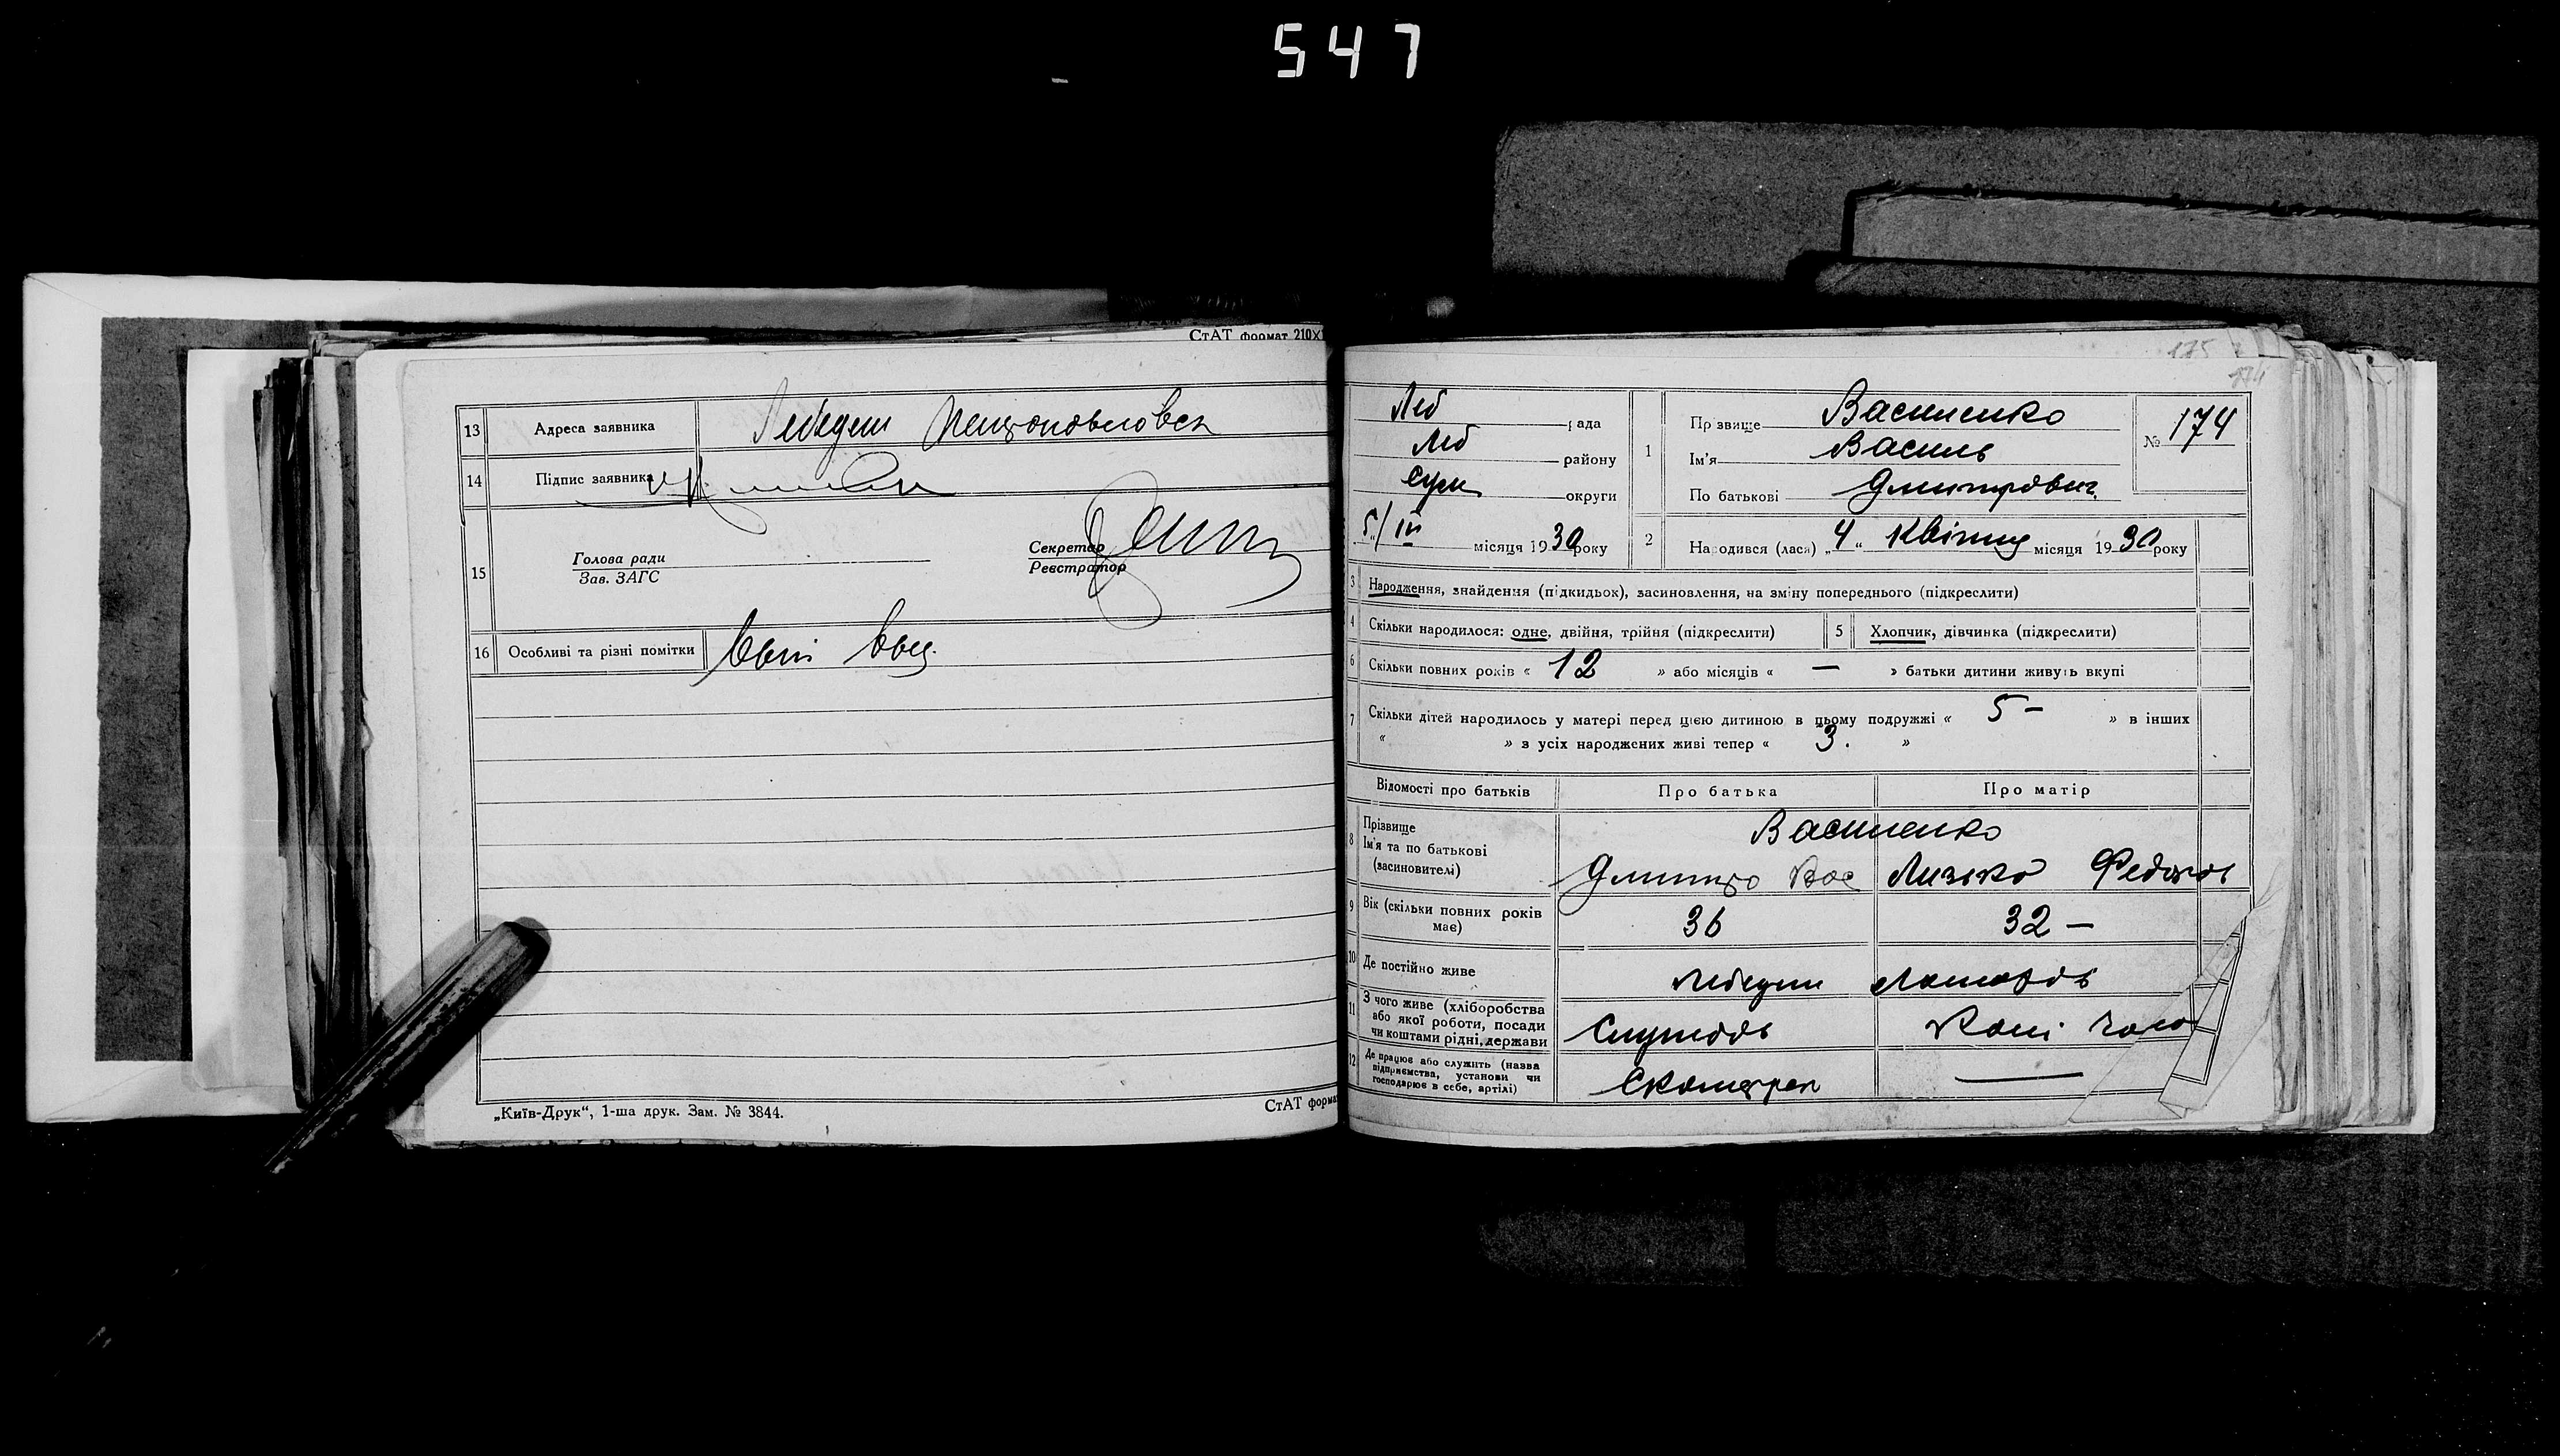 547
СтАТ формат 210×
13 Адреса заявника Лебедин
14 Підпис заявника
15 Голова ради
Зав. ЗАГС
Секретар
Реєстратор
16 Особливі та різні помітки
„Київ-Друк“, 1-ша друк. Зам. № 3844.
СтАТ форма
175
174
Леб рада
Леб району
Сум округи
5/IV місяця 1930 року
1 Прізвище Василенко
Ім'я Василь
По батькові Дмитрович
№ 174
2 Народився (лася) „4“ Квітня місяця 1930 року
3 Народження, знайдення (підкидьок), засиновлення, на зміну попереднього (підкреслити)
4 Скільки народилося: одне, двійня, трійня (підкреслити) 5 Хлопчик, дівчинка (підкреслити)
6 Скільки повних років « 12 » або місяців « — » батьки дитини живуть вкупі
7 Скільки дітей народилось у матері перед цією дитиною в цьому подружжі « 5 — » в інших
« » з усіх народжених живі тепер « 3. »
Відомості про батьків Про батька Про матір
8 Прізвище
Ім'я та по батькові
(засиновителі)
Василенко
Дмитро Вас Лизька Федоров
9 Вік (скільки повних років має) 36 32 —
10 Де постійно живе Лебедин
11 З чого живе (хліборобства
або якої роботи, посади
чи коштами рідні, держави
12 Де працює або служить (назва
підприємства, установи чи
господарює в себе, артілі) —